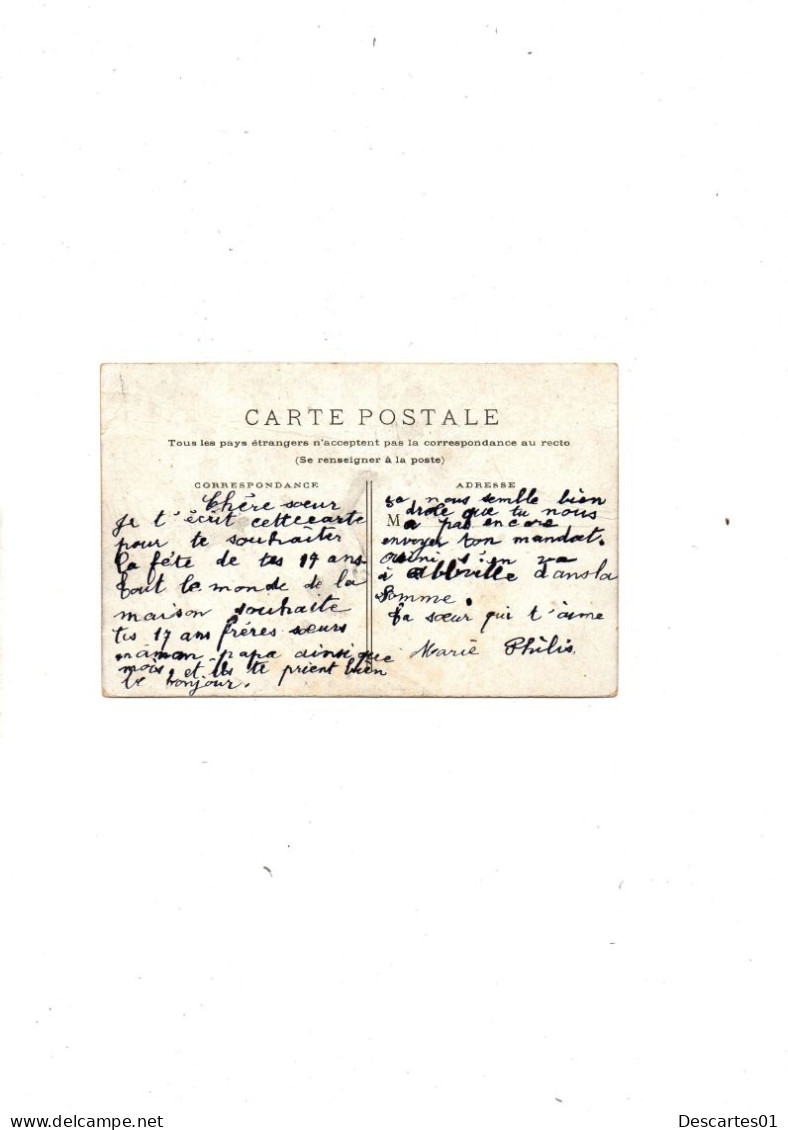 CARTE POSTALE
Tous les pays étrangers n'acceptent pas la correspondance au recto
(Se renseigner à la poste)
CORRESPONDANCE
Chère soeur
Je t'écrit cette carte
pour te souhaiter
la féte de tes 17 ans
tout le monde de la
maison souhaite
tes 17 ans fréres soeurs
maman papa ainsi que
mois et ils te prient bien
le bonjour.
ADRESSE
sa nous semble bien
drole que tu nous
M
a pas encore
envoyer ton mandat.
s'en va
à Abbville dans la
Somme.
Ta soeur qui t'aime
Marie Philis
delcampe.net
Descartes01